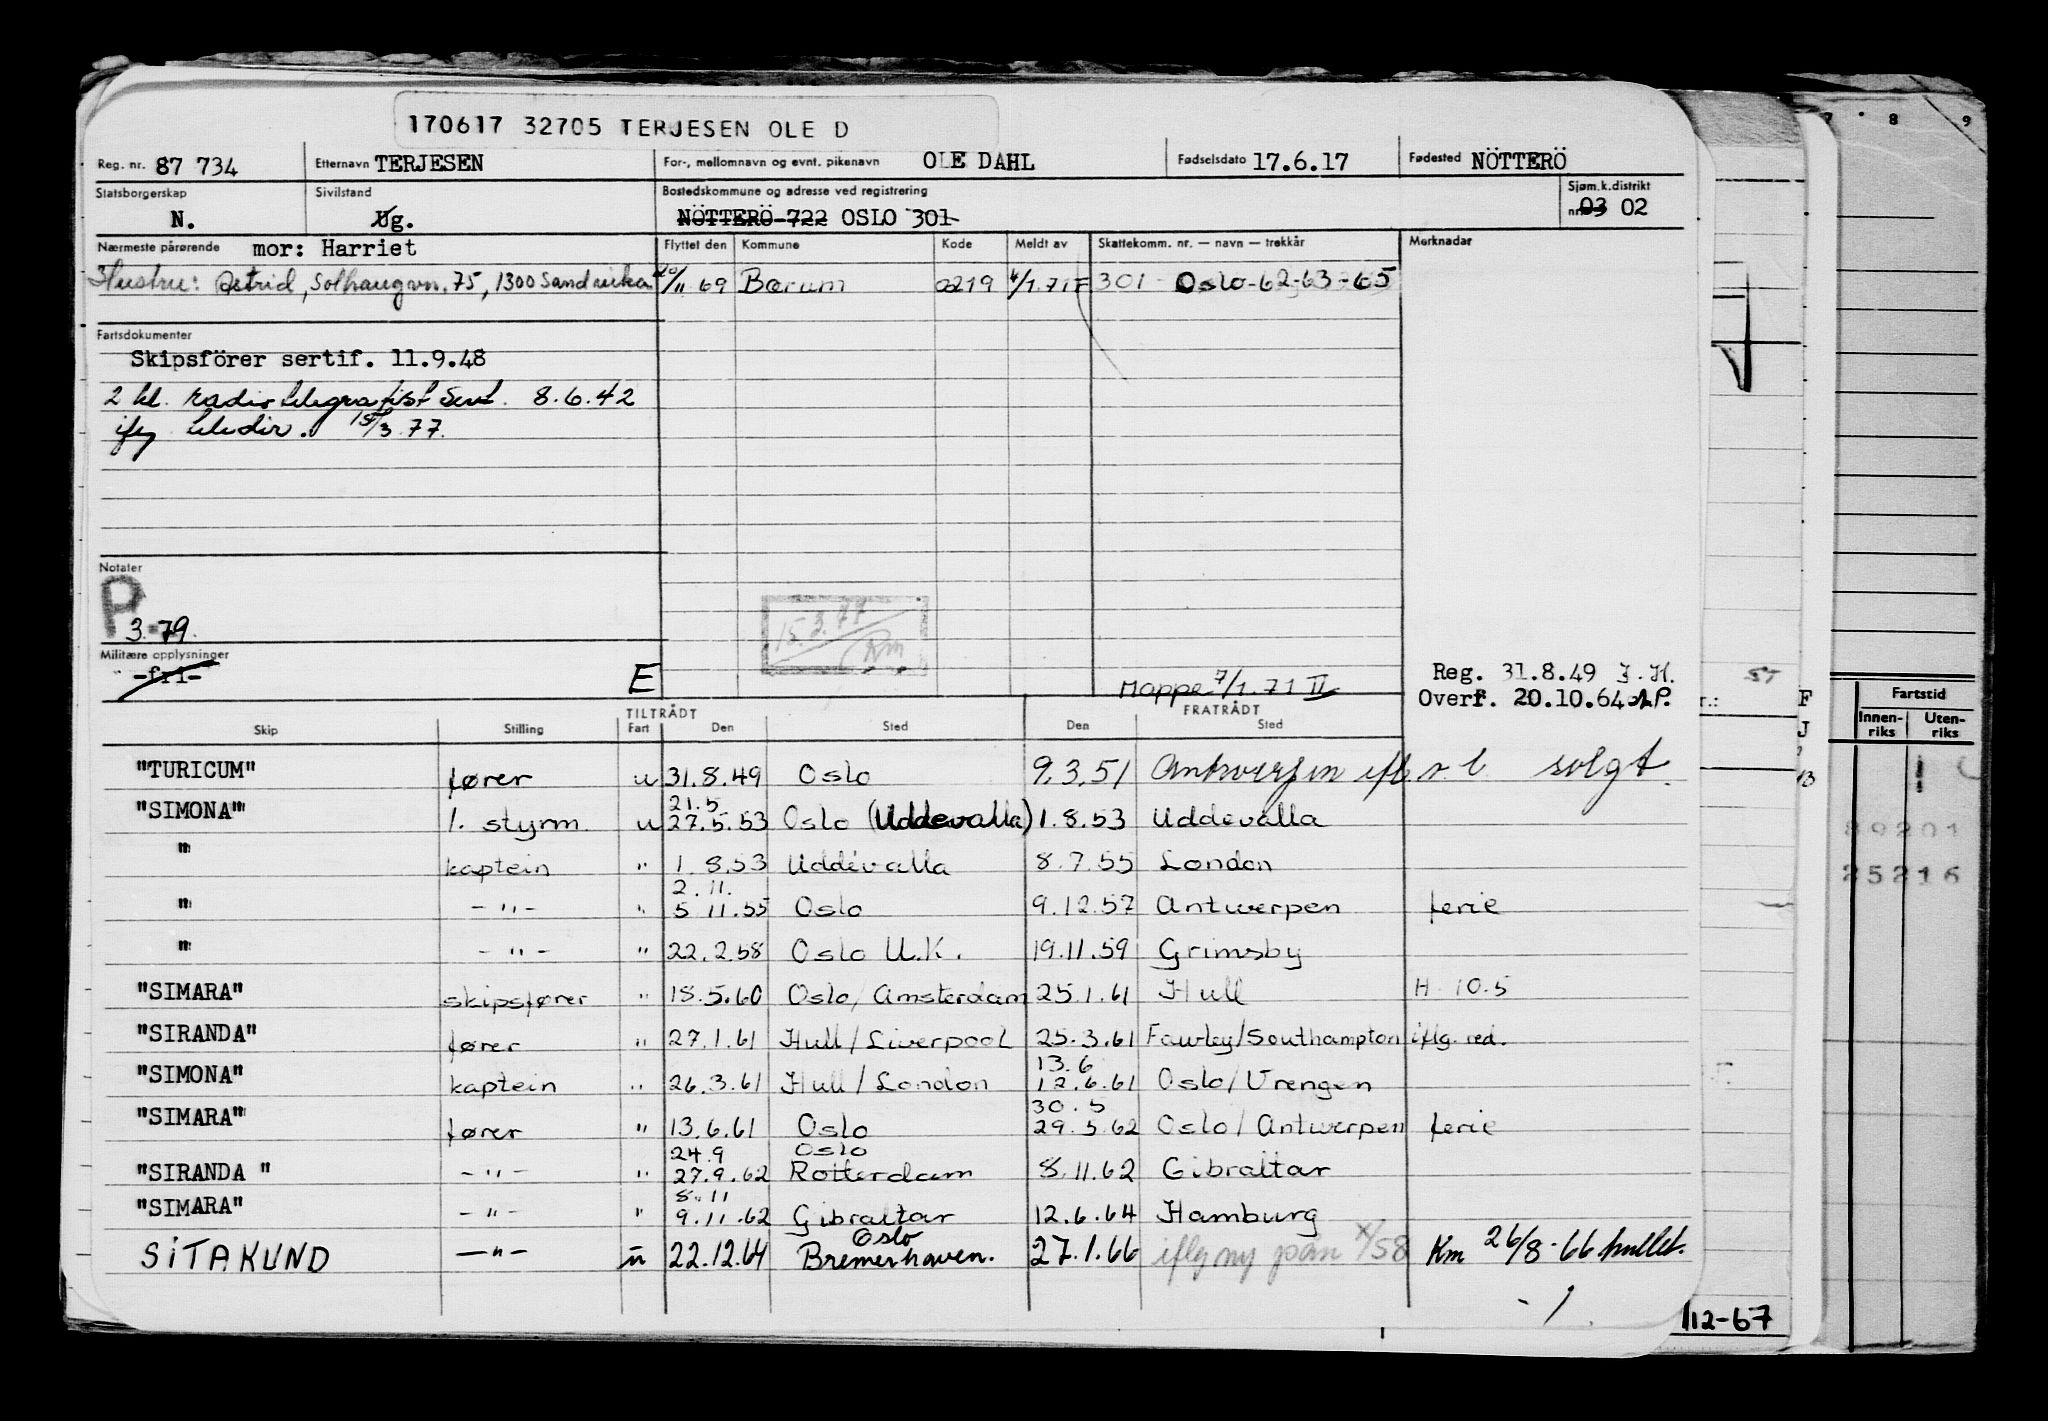 170617 32705 TERJESEN OLE D
Reg. nr. 87 734 Etternavn TERJESEN For-, mellomnavn og evnt. pikenavn OLE DAHL Fødselsdato 17.6.17 Fødested NÖTTERÖ
Statsborgerskap Sivilstand Bostedskommune og adresse ved registrering Sjøm.k.distrikt
N. Ug. NÖTTERÖ 722 OSLO 301 nr. 03 02
Nærmeste pårørende mor: Harriet Flyttet den Kommune Kode Meldt av Skattekomm. nr. — navn — trekkår Merknader
Hustru: Astrid, Solhaugvn. 75, 1300 Sandvika 20/11 69 Bærum 0219 4/1.71 F 301 Oslo-62-63-65
Fartsdokumenter
Skipsförer sertif. 11.9.48
2 kl. radiotelegrafist Sert. 8.6.42
ifg teledir. 15/3.77.
Notater
P
3.79.
15.3.77
Km
Militære opplysninger
-fri- E Mappe 7/1.71 II
Reg. 31.8.49 J.H.
Overf. 20.10.64 AP.
TILTRÅDT FRATRÅDT
Skip Stilling Fart Den Sted Den Sted
"TURICUM" fører u 31.8.49 Oslo 9.3.51 Antwerpen solgt.
21.5
"SIMONA" 1. styrm. u 27.5.53 Oslo (Uddevalla) 1.8.53 Uddevalla
" kaptein " 1.8.53 Uddevalla 8.7.55 London
2.11.
" -"- " 5 11.55 Oslo 9.12.57 Antwerpen ferie
" -"- " 22.2.58 Oslo U.K. 19.11.59 Grimsby
"SIMARA" skipsfører " 18.5.60 Oslo/Amsterdam 25.1.61 Hull H 10.5
"SIRANDA" fører " 27.1.61 Hull/Liverpool 25.3.61 Fawley/Southampton iflg. red.
13.6
"SIMONA" kaptein " 26.3.61 Hull/London 12.6.61 Oslo/Vrengen
30.5
"SIMARA" fører " 13.6.61 Oslo 29.5.62 Oslo/Antwerpen ferie
24.9 Oslo
"SIRANDA " -"- " 27.9.62 Rotterdam 8.11.62 Gibraltar
8.11
"SIMARA" -"- " 9.11.62 Gibraltar 12.6.64 Hamburg
Oslo
SITAKUND -"- u 22.12.64 Bremerhaven. 27.1.66 iflg ny X/58 Km 26/8-66 hullet.
- 1.
112-67
7 8 9
ST
r.:
F
J
Fartstid
Innen-
riks
Uten-
riks
89201
25216